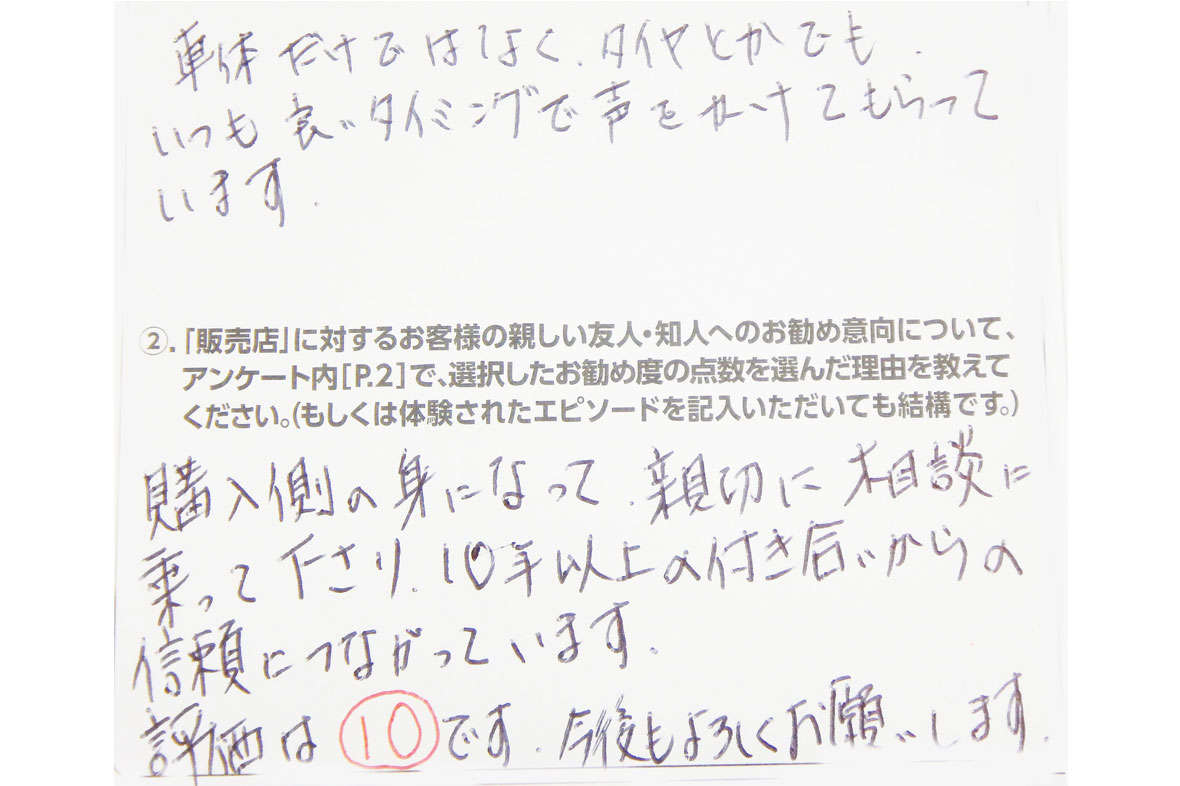 車体だけではなく、タイヤとかでも、
いつも良いタイミングで声をかけてもらって
います。
②.「販売店」に対するお客様の親しい友人・知人へのお勧め意向について、
アンケート内[P.2]で、選択したお勧め度の点数を選んだ理由を教えて
ください。(もしくは体験されたエピソードを記入いただいても結構です。)
購入側の身になって、親切に相談に
乗って下さり、10年以上の付き合いからの
信頼につながっています。
評価は⑩です。今後もよろしくお願いします。